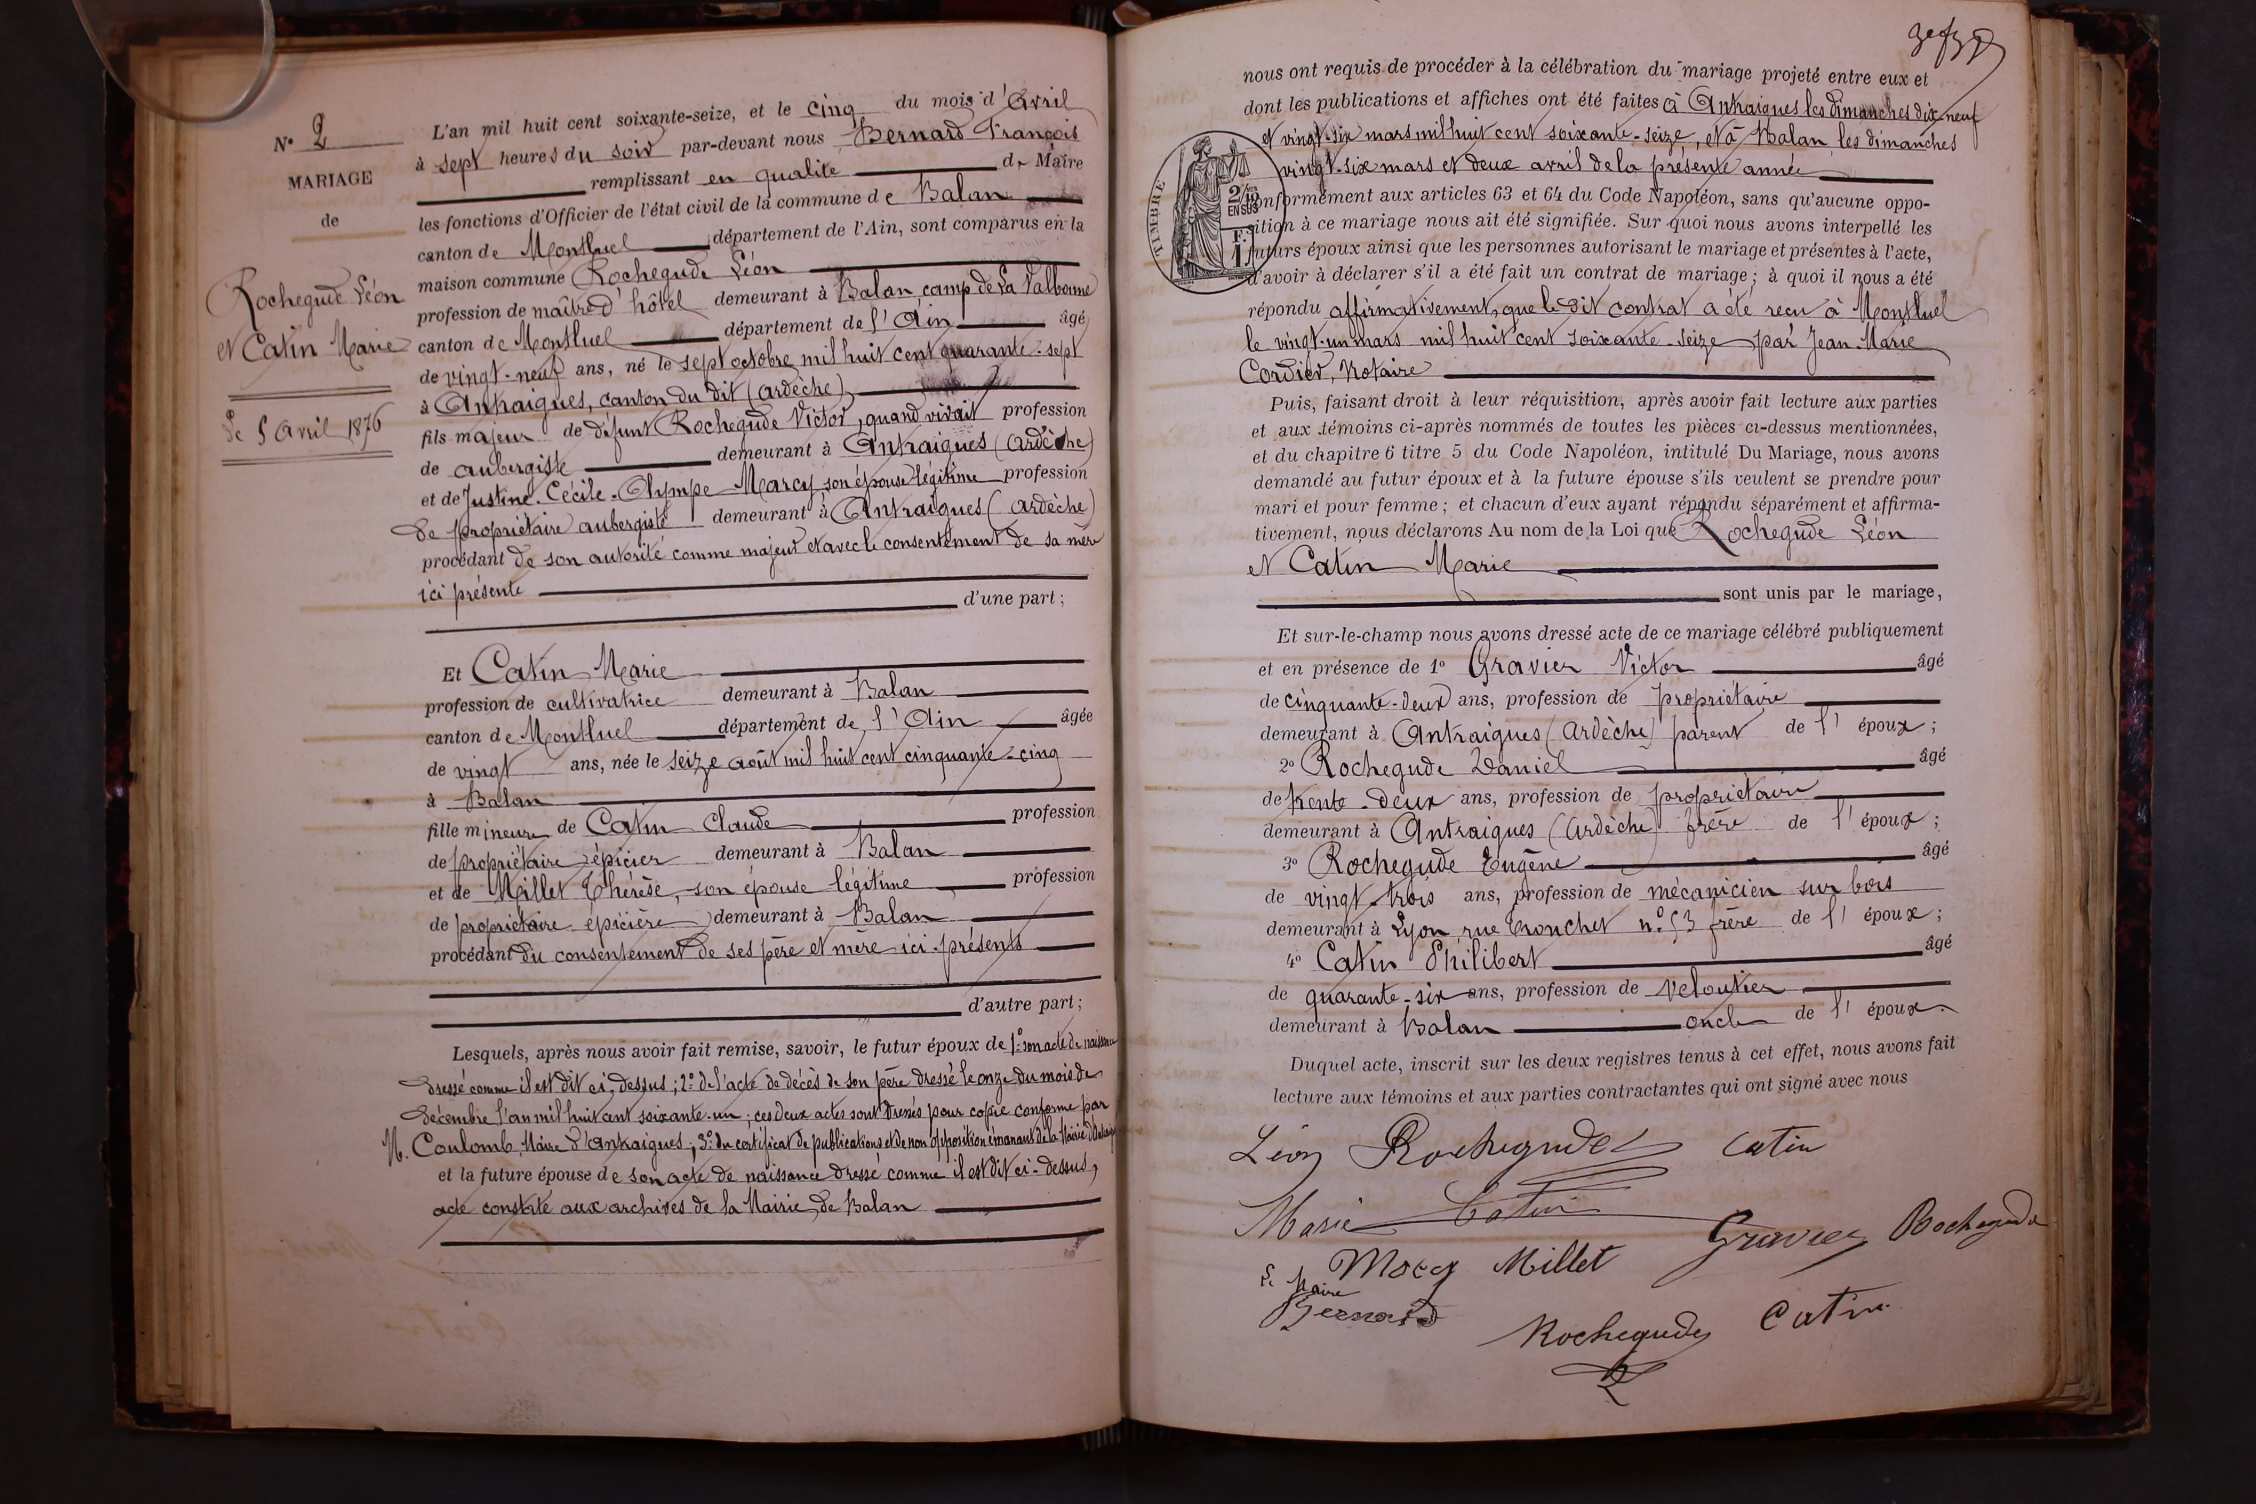 Nº 2
MARIAGE
de
Rochegude Léon
et Catin Marie
Le 5 Avril 1876
L'an mil huit cent soixante-seize, et le cinq du mois d'Avril
à sept heures du soir par-devant nous Bernard François
remplissant en qualité de Maire
les fonctions d'Officier de l'état civil de la commune de Balan
canton de Montluel département de l'Ain, sont comparus en la
maison commune Rochegude Léon
profession de maître d'hôtel demeurant à Balan, camp de La Valbonne
canton de Montluel département de l'Ain âgé
de vingt-neuf ans, né le sept octobre mil huit cent quarante-sept
à Antraigues, canton du dit (Ardèche)
fils majeur de défunt Rochegude Victor, quand vivait profession
de aubergiste demeurant à Antraigues (Ardèche)
et de Justine-Cécile-Olympe Marcy son épouse légitime profession
de propriétaire aubergiste demeurant à Antraigues (Ardèche)
procédant de son autorité comme majeur et avec le consentement de sa mère
ici présente
d'une part;
Et Catin Marie
profession de cultivatrice demeurant à Balan
canton de Montluel département de l'Ain âgée
de vingt ans, née le seize août mil huit cent cinquante-cinq
à Balan
fille mineure de Catin Claude profession
de propriétaire épicier demeurant à Balan
et de Millet Thérèse, son épouse légitime profession
de propriétaire épicière demeurant à Balan
procédant du consentement de ses père et mère ici présents
d'autre part;
Lesquels, après nous avoir fait remise, savoir, le futur époux de 1º son acte de naissance
dressé comme il est dit ci-dessus; 2º de l'acte de décès de son père dressé le onze du mois de
décembre l'an mil huit cent soixante-un; ces deux actes sont dressés pour copie conforme par
M. Coulomb, Maire d'Antraigues; 3º du certificat de publications et de non opposition émanant de la Mairie d'Antraigues
et la future épouse de son acte de naissance dressé comme il est dit ci-dessus,
acte constaté aux archives de la Mairie de Balan
nous ont requis de procéder à la célébration du mariage projeté entre eux et
dont les publications et affiches ont été faites à Antraigues les dimanches dix-neuf
et vingt-six mars mil huit cent soixante-seize, et à Balan les dimanches
vingt-six mars et deux avril de la présente année
TIMBRE
2/10
EN SUS
F.
1
conformément aux articles 63 et 64 du Code Napoléon, sans qu'aucune oppo-
sition à ce mariage nous ait été signifiée. Sur quoi nous avons interpellé les
futurs époux ainsi que les personnes autorisant le mariage et présentes à l'acte,
d'avoir à déclarer s'il a été fait un contrat de mariage; à quoi il nous a été
répondu affirmativement, que le dit contrat a été reçu à Montluel
le vingt-un mars mil huit cent soixante-seize par Jean Marie
Cordier, Notaire
Puis, faisant droit à leur réquisition, après avoir fait lecture aux parties
et aux témoins ci-après nommés de toutes les pièces ci-dessus mentionnées,
et du chapitre 6 titre 5 du Code Napoléon, intitulé Du Mariage, nous avons
demandé au futur époux et à la future épouse s'ils veulent se prendre pour
mari et pour femme; et chacun d'eux ayant répondu séparément et affirma-
tivement, nous déclarons Au nom de la Loi que Rochegude Léon
et Catin Marie
sont unis par le mariage,
Et sur-le-champ nous avons dressé acte de ce mariage célébré publiquement
et en présence de 1º Gravier Victor âgé
de cinquante-deux ans, profession de propriétaire
demeurant à Antraigues (Ardèche) parent de l'époux;
2º Rochegude Daniel âgé
de trente-deux ans, profession de propriétaire
demeurant à Antraigues (Ardèche) frère de l'époux;
3º Rochegude Eugène âgé
de vingt-trois ans, profession de mécanicien sur bois
demeurant à Lyon, rue Tronchet nº 53 frère de l'époux;
4º Catin Philibert âgé
de quarante-six ans, profession de Veloutier
demeurant à Balan oncle de l'époux.
Duquel acte, inscrit sur les deux registres tenus à cet effet, nous avons fait
lecture aux témoins et aux parties contractantes qui ont signé avec nous
Léon Rochegude Catin
Marie Catin
Gravier Rochegude
Marcy Millet
Le Maire
Bernard
Rochegude Catin